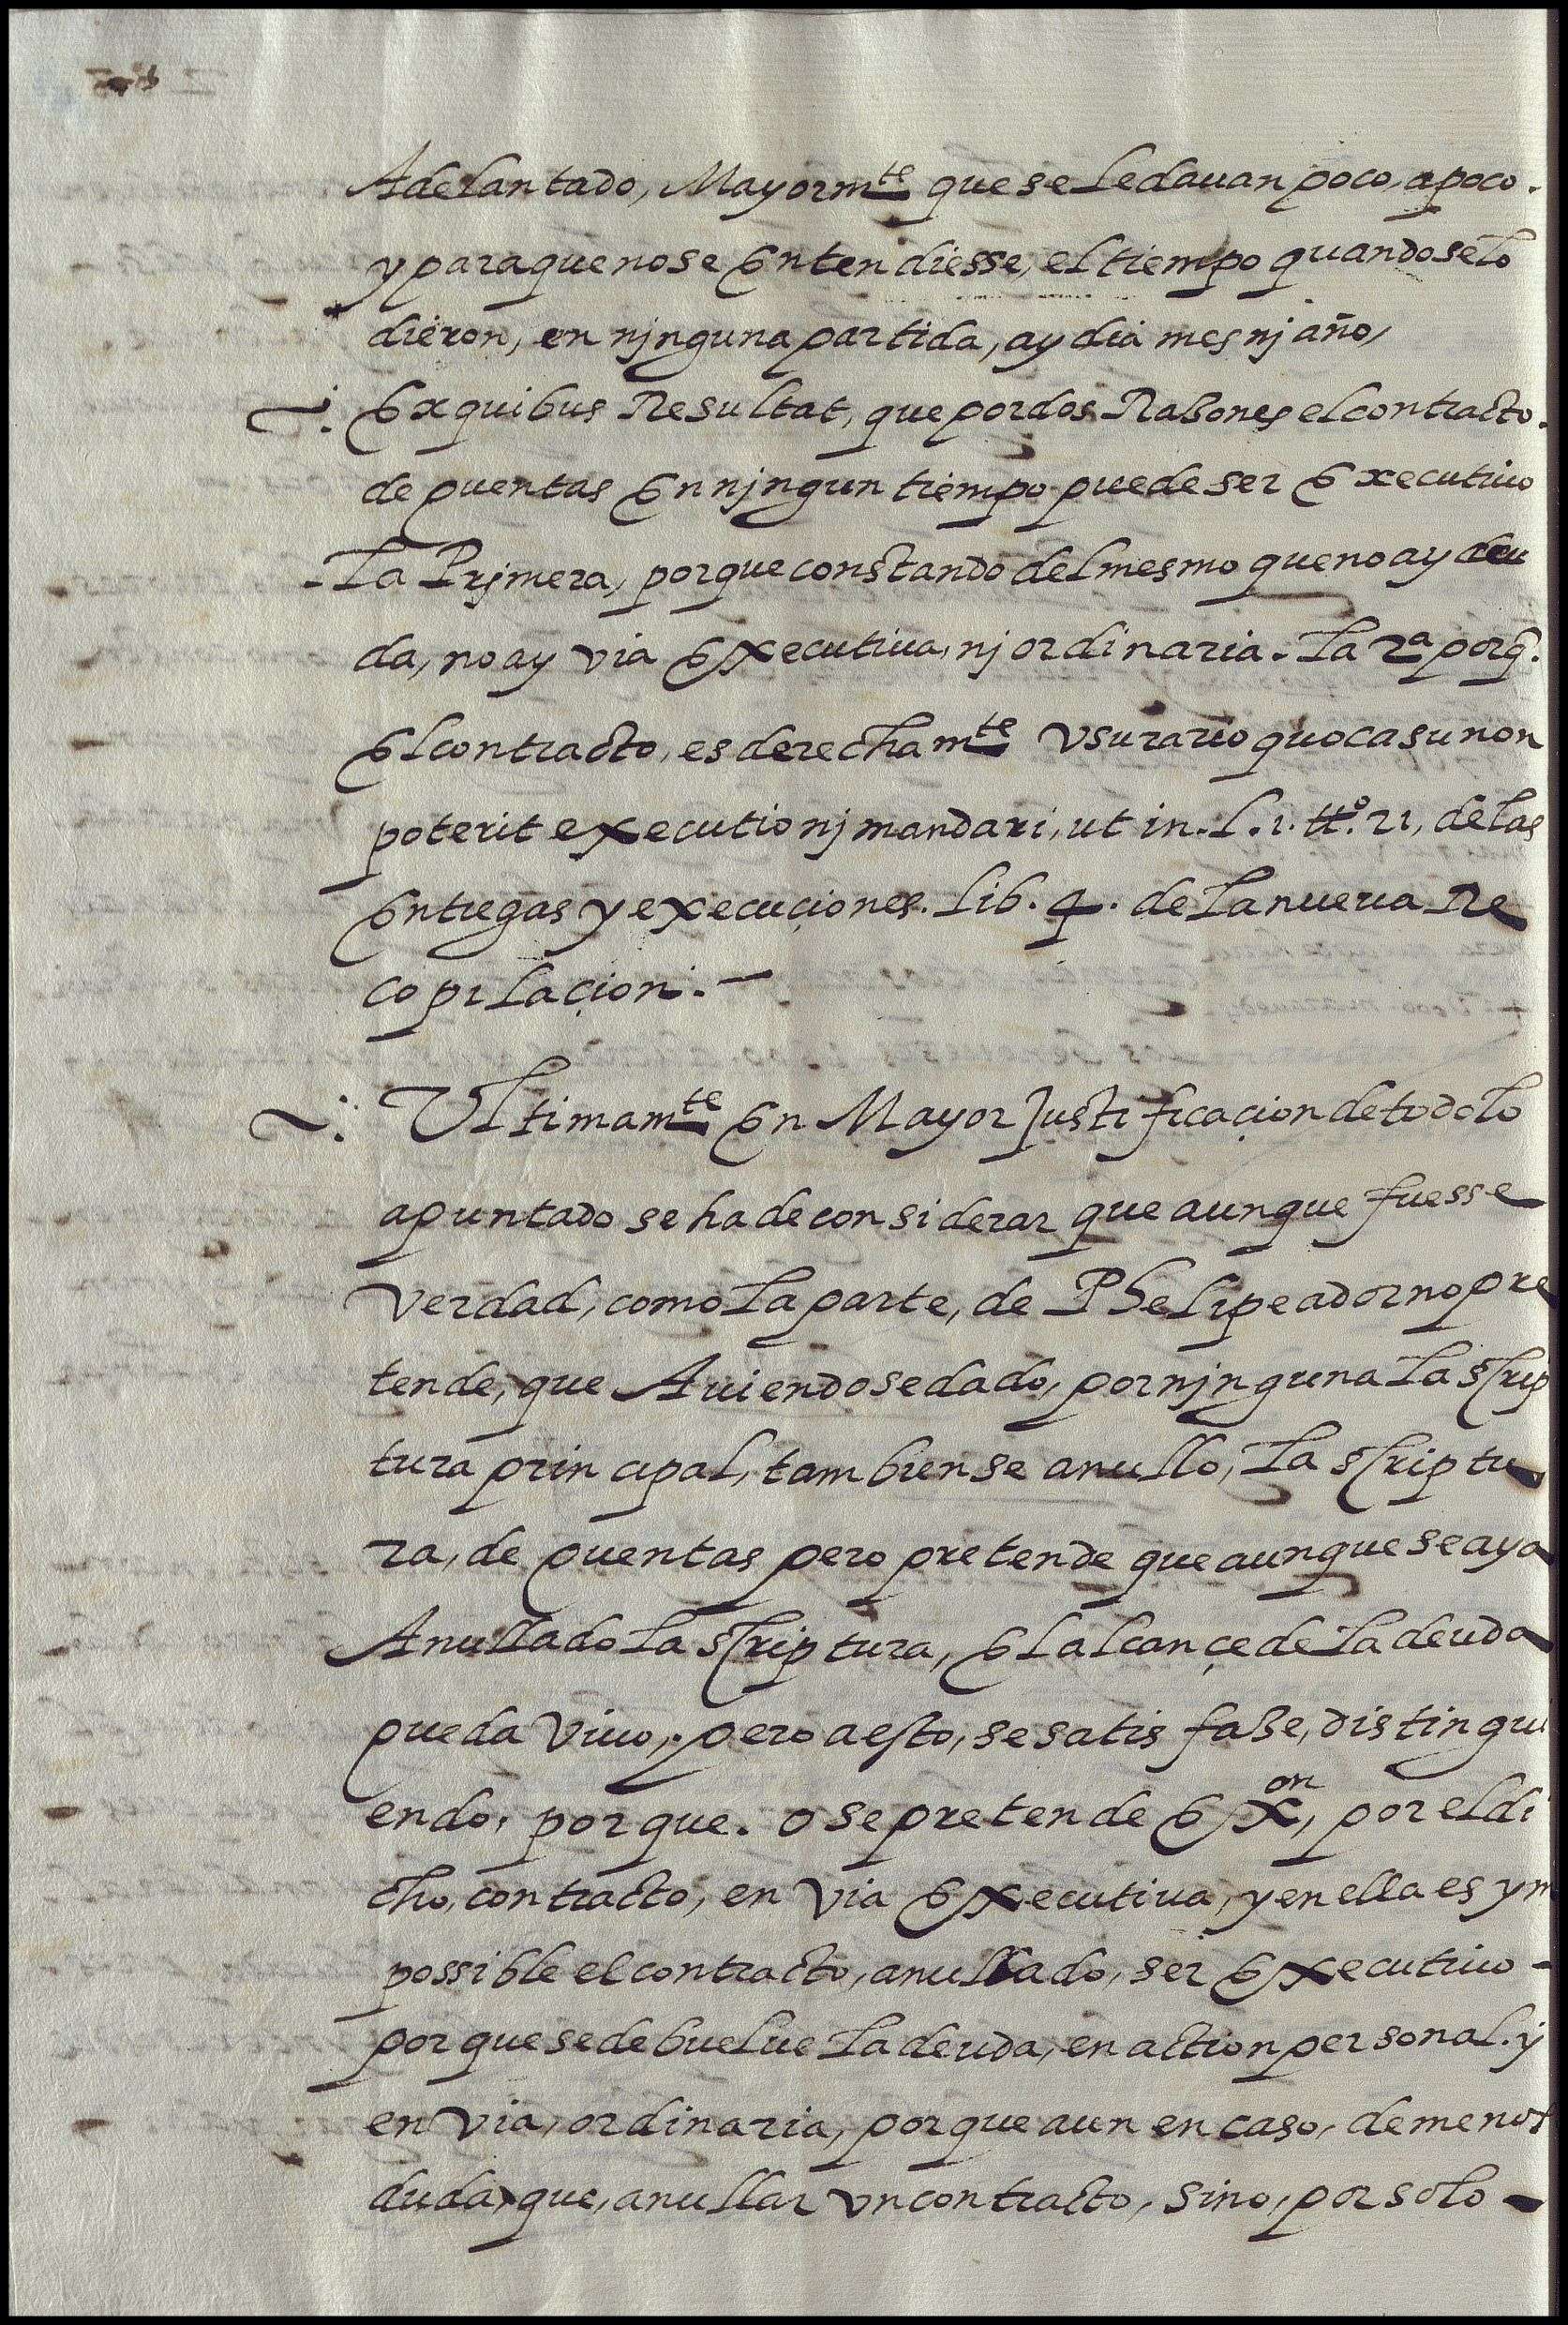 Adelantado, Mayormte que se le dauan poco, a poco.
y para que no se Entendiesse, el tiempo quando se lo
dieron, en njnguna partida, ay dia mes nj año,
Ex quibus Resultat, que por dos Rasones el contracto.
de quentas En njngun tiempo puede ser Executiuo
La Prjmera, porque constando del mesmo que no ay deu
da, no ay via Executiua, nj ordinaria. La 2a porq.
El contracto, es derechamte vsurario quo casu non
poterit executionj mandari, ut in. L. 1. tto. 21, de las
Entregas y execuçiones. Lib. 4. de la nueua Re
copilaçion.
Vltimamte En Mayor Justificaçion de todo lo
apuntado se ha de considerar que aunque fuesse
verdad, como la parte, de Phelipe adorno pre
tende, que Auiendose dado, por njnguna la scrip
tura principal, tambien se anullo, la scriptu
ra, de quentas pero pretende que aunque se aya
Anullado la scriptura, El alcançe de la deuda
queda viuo, pero a esto, se satisfase, distingui
endo, porque. o se pretende Exon, por el di
cho, contracto, en via Executiua, y en ella es ym
possible el contracto, anullado, ser Executiuo
porque se debuelue la deuda, en action personal. y
en via, ordinaria, porque aun en caso, de menor
duda, que, anullar vn contracto, sino, por solo